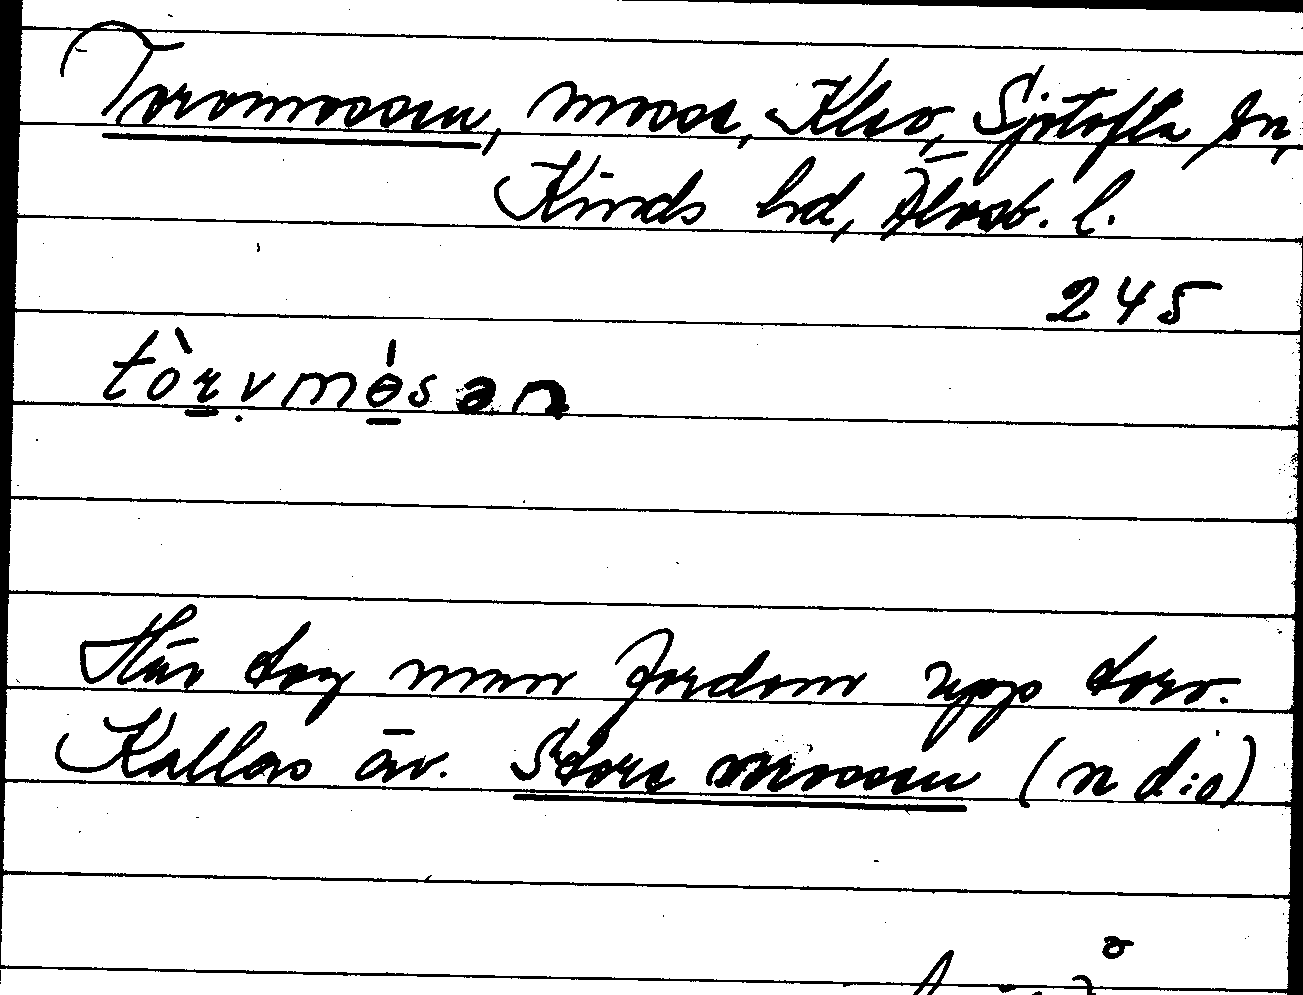 Torvmossen, mosse, Klev, Sjötofta sn,
Kinds hd, Älvsb. l.
245
tòrvmósən
Här tog man fordom upp torv.
Kallas äv. Stora mossen (n d:o)